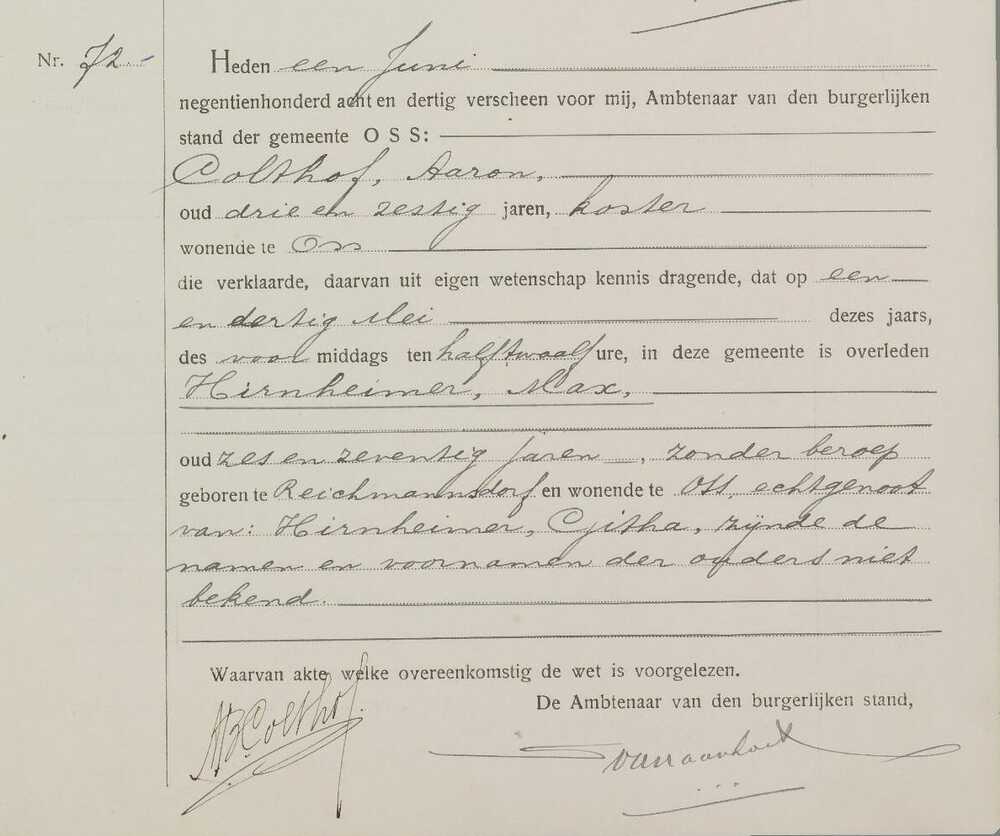 Nr. 72.-
Heden een Juni
negentienhonderd acht en dertig verscheen voor mij, Ambtenaar van den burgerlijken
stand der gemeente OSS:
Colthof, Aaron,
oud drie en zestig jaren, koster
wonende te Oss
die verklaarde, daarvan uit eigen wetenschap kennis dragende, dat op een
en dertig Mei dezes jaars,
des voor middags ten half twaalf ure, in deze gemeente is overleden
Hirnheimer, Max,
oud zes en zeventig jaren, zonder beroep
geboren te Reichmannsdorf en wonende te Oss, echtgenoot
van: Hirnheimer, Githa, zijnde de
namen en voornamen der ouders niet
bekend.
Waarvan akte, welke overeenkomstig de wet is voorgelezen.
De Ambtenaar van den burgerlijken stand,
Colthof.